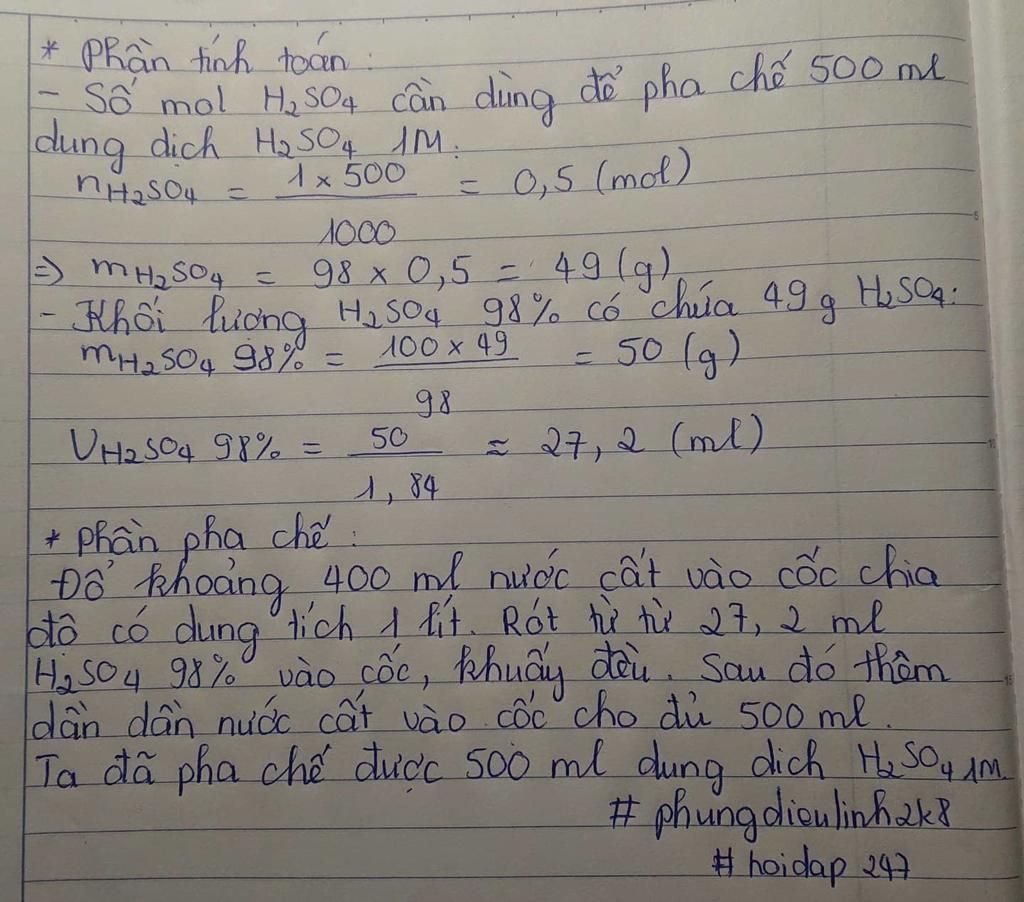 * Phần tính toán:
- Số mol H₂SO₄ cần dùng để pha chế 500 ml
dung dịch H₂SO₄ 1M:
nH₂SO₄ = 1 × 500 / 1000 = 0,5 (mol)
=> mH₂SO₄ = 98 × 0,5 = 49 (g)
- Khối lượng H₂SO₄ 98% có chứa 49 g H₂SO₄:
mH₂SO₄ 98% = 100 × 49 / 98 = 50 (g)
VH₂SO₄ 98% = 50 / 1,84 ≈ 27,2 (ml)
* Phần pha chế:
Đổ khoảng 400 ml nước cất vào cốc chia
độ có dung tích 1 lít. Rót từ từ 27,2 ml
H₂SO₄ 98% vào cốc, khuấy đều. Sau đó thêm
dần dần nước cất vào cốc cho đủ 500 ml.
Ta đã pha chế được 500 ml dung dịch H₂SO₄ 1M.
# phungdieulinh2k8
# hoidap 247